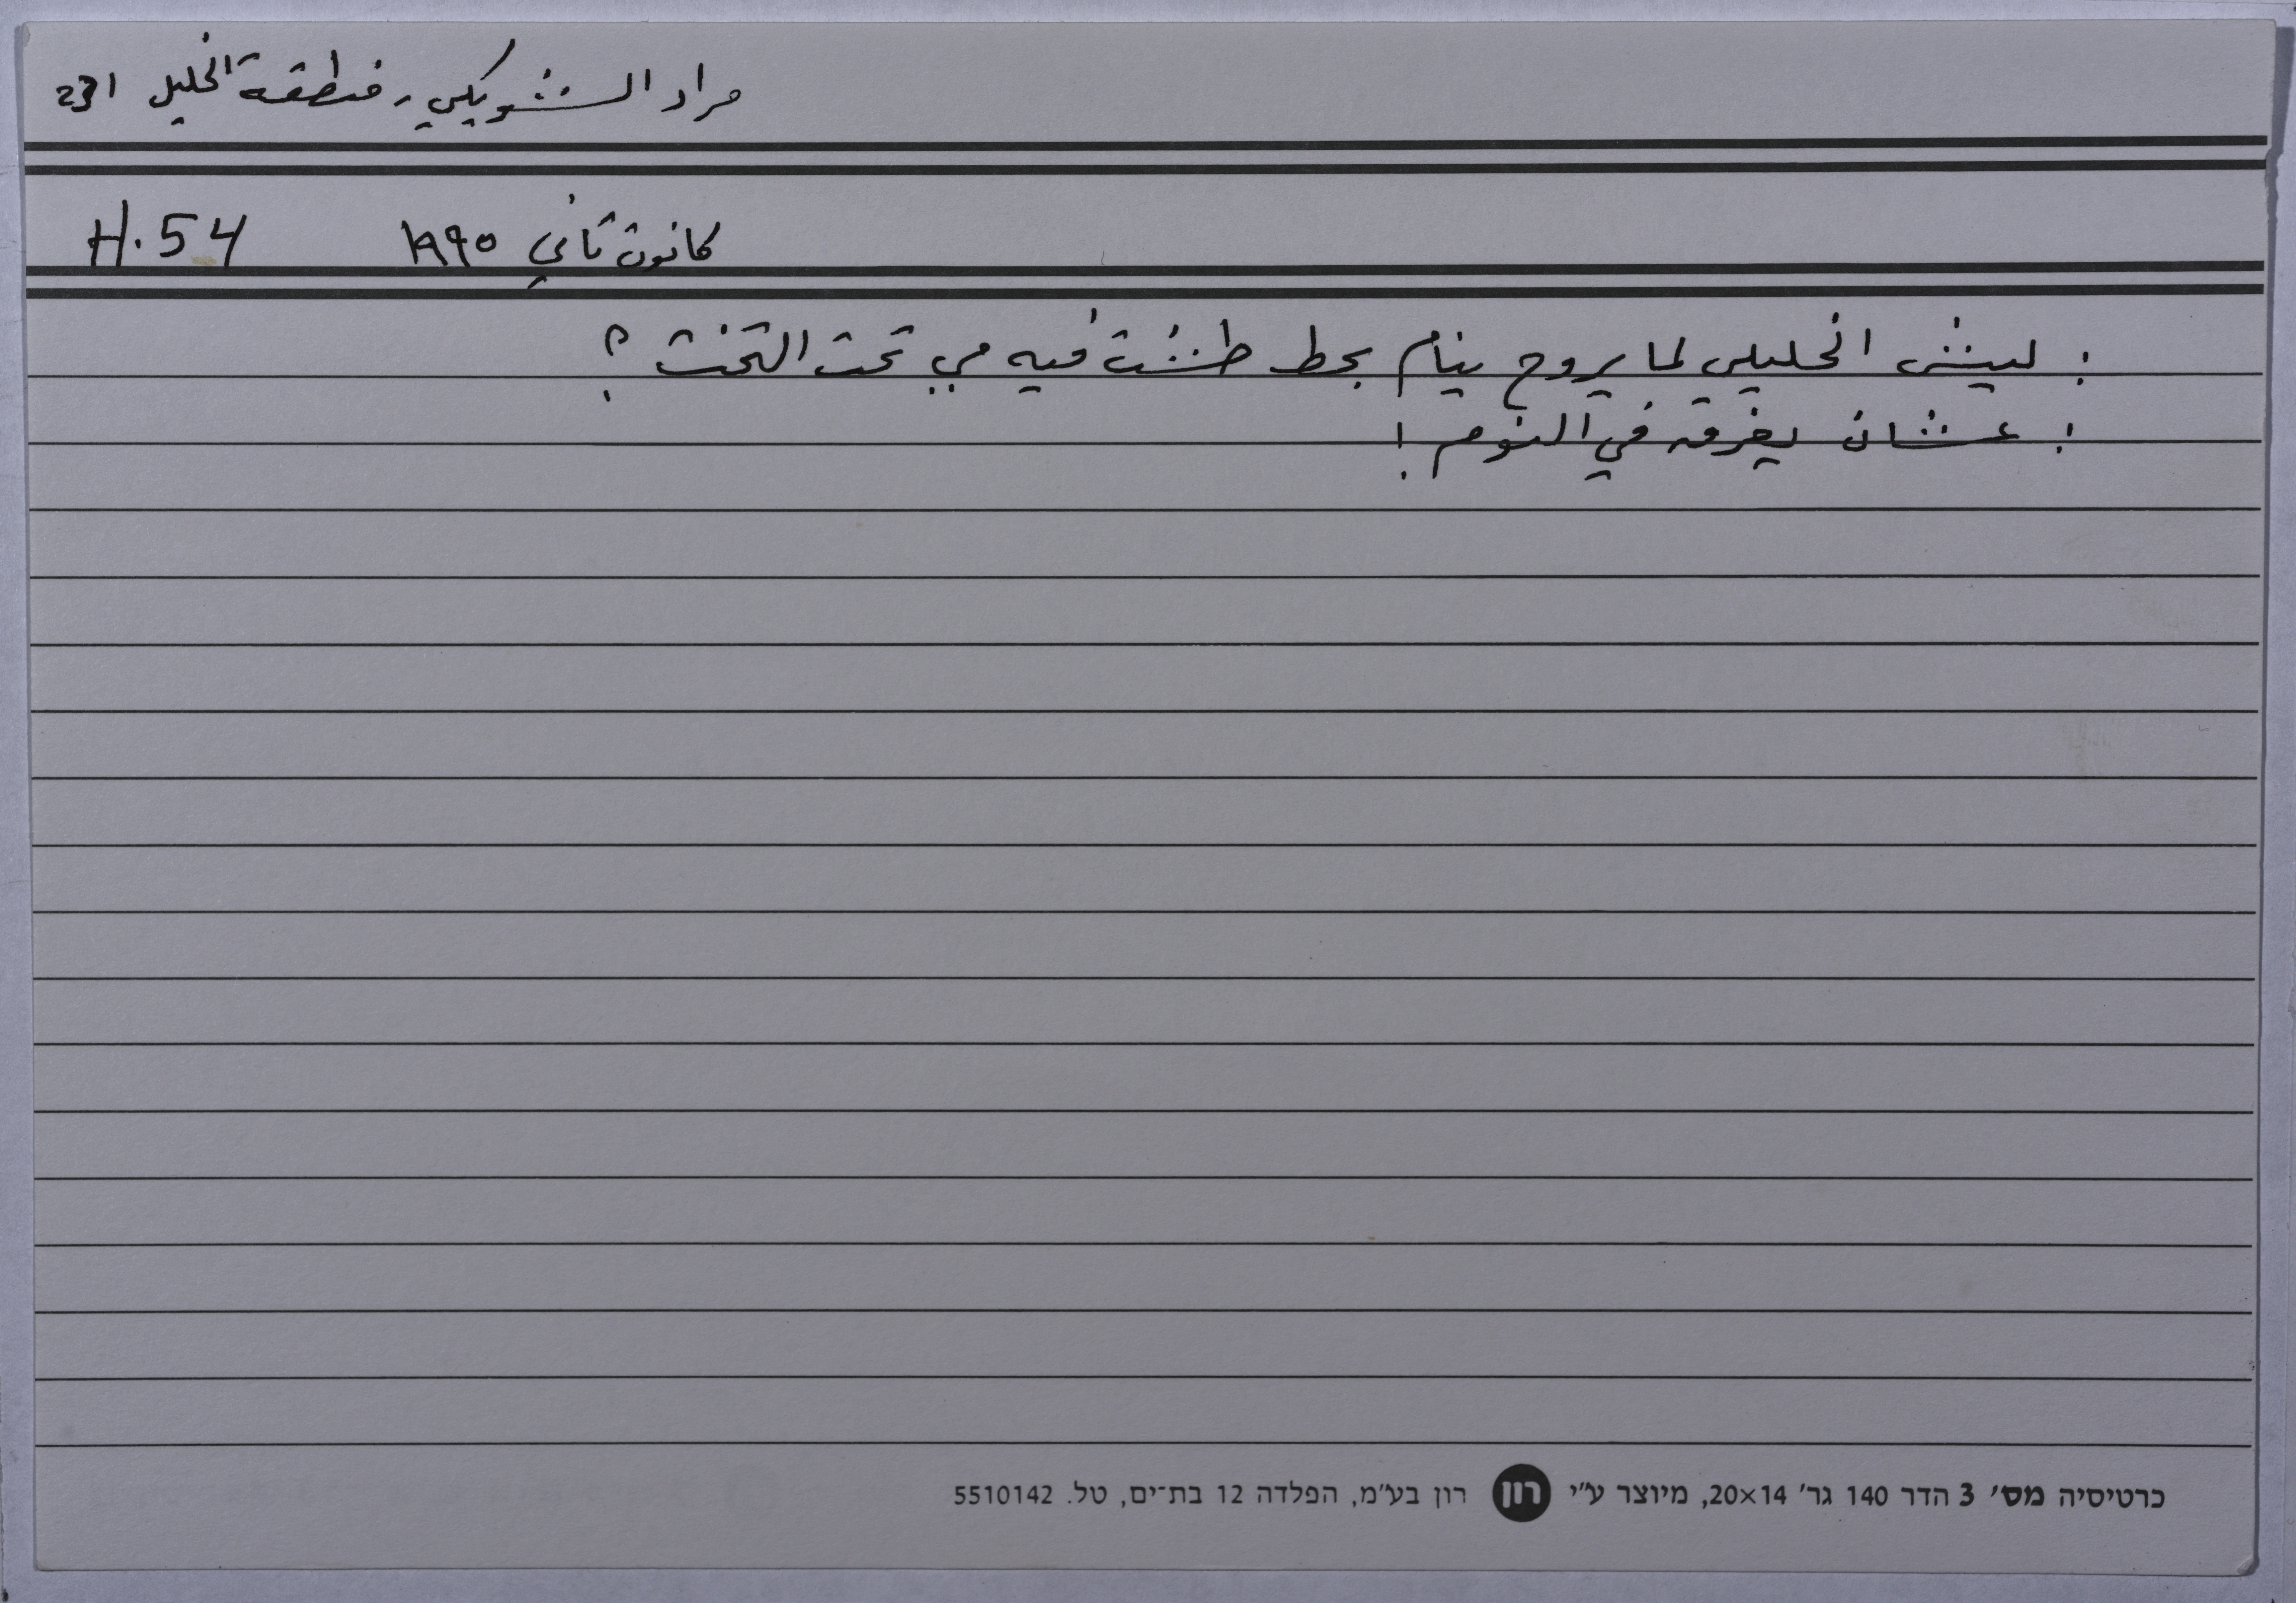 مراد الشويكي، منطقة الخليل 231
كانون ثاني ١٩٩٥ H.54
: ليش الخليلي لما يروح ينام بحط طشت فيه مي تحت التخت ؟
: عشان يغرق في النوم !
כרטיסיה מס׳ 3 הדר 140 גר׳ 20×14, מיוצר ע״י רון רון בע״מ, הפלדה 12 בת־ים, טל. 5510142